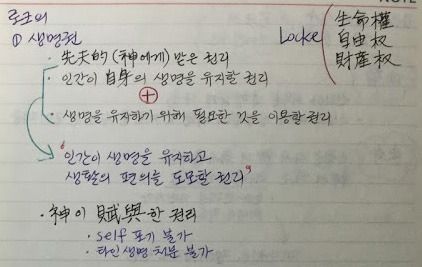 로크의
① 생명권
Locke
生命權
自由权
財産权
· 先天的 (神에게) 받은 권리
· 인간이 自身의 생명을 유지할 권리
+
· 생명을 유지하기 위해 필요한 것을 이용할 권리
"인간이 생명을 유지하고
생활의 편의를 도모할 권리"
· 神이 賦與한 권리
· self 포기 불가
· 타인생명 처분 불가